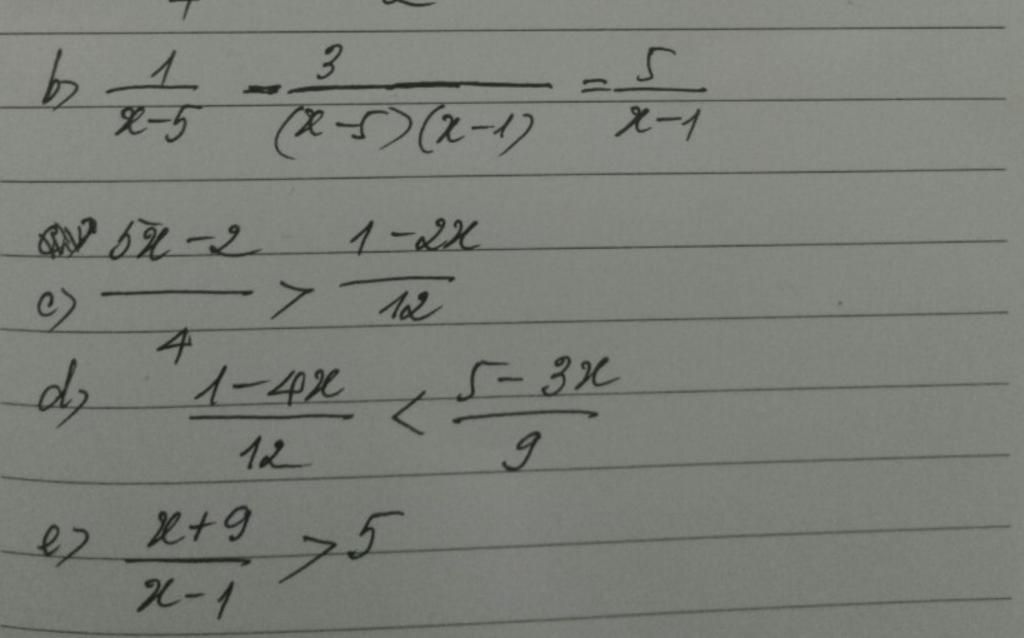 b) 1/(x-5) - 3/((x-5)(x-1)) = 5/(x-1)
c) (5x-2)/4 > (1-2x)/12
d) (1-4x)/12 < (5-3x)/9
e) (x+9)/(x-1) > 5